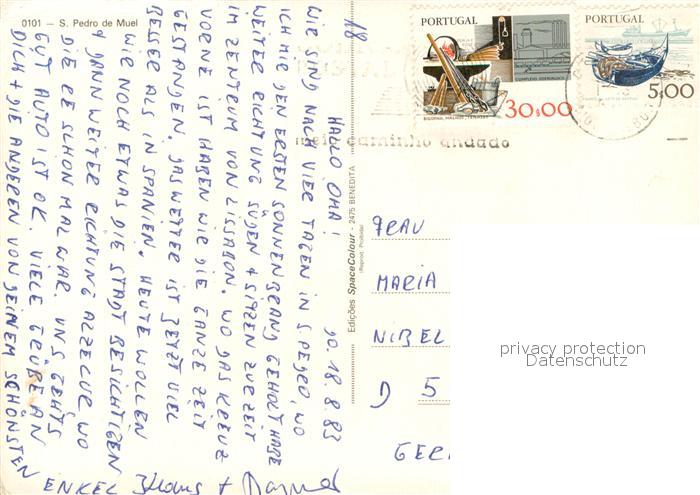 0101 – S. Pedro de Muel
18
HALLO OMA! DO. 18.8.83
WIR SIND NACH VIER TAGEN IN S. PEDRO, WO
ICH MIR DEN ERSTEN SONNENBRAND GEHOLT HABE
WEITER RICHTUNG SÜDEN + SITZEN ZUR ZEIT
IM ZENTRUM VON LISSABON. WO DAS KREUZ
VORNE IST HABEN WIR DIE GANZE ZEIT
GESTANDEN. DAS WETTER IST JETZT VIEL
BESSER ALS IN SPANIEN. HEUTE WOLLEN
WIR NOCH ETWAS DIE STADT BESICHTIGEN
+ DANN WEITER RICHTUNG ALZECUR, WO
DIE RE SCHON MAL WAR. UNS GEHTS
GUT AUTO IST OK. VIELE GRÜßE AN
DICH + DIE ANDEREN VON DEINEM SCHÖNSTEN
ENKEL Klaus +
Edições SpaceColour - 2475 BENEDITA
PORTUGAL
30$00
PORTUGAL
5$00
caminho andado
FRAU
MARIA
NIBEL
D 5
GER
privacy protection
Datenschutz